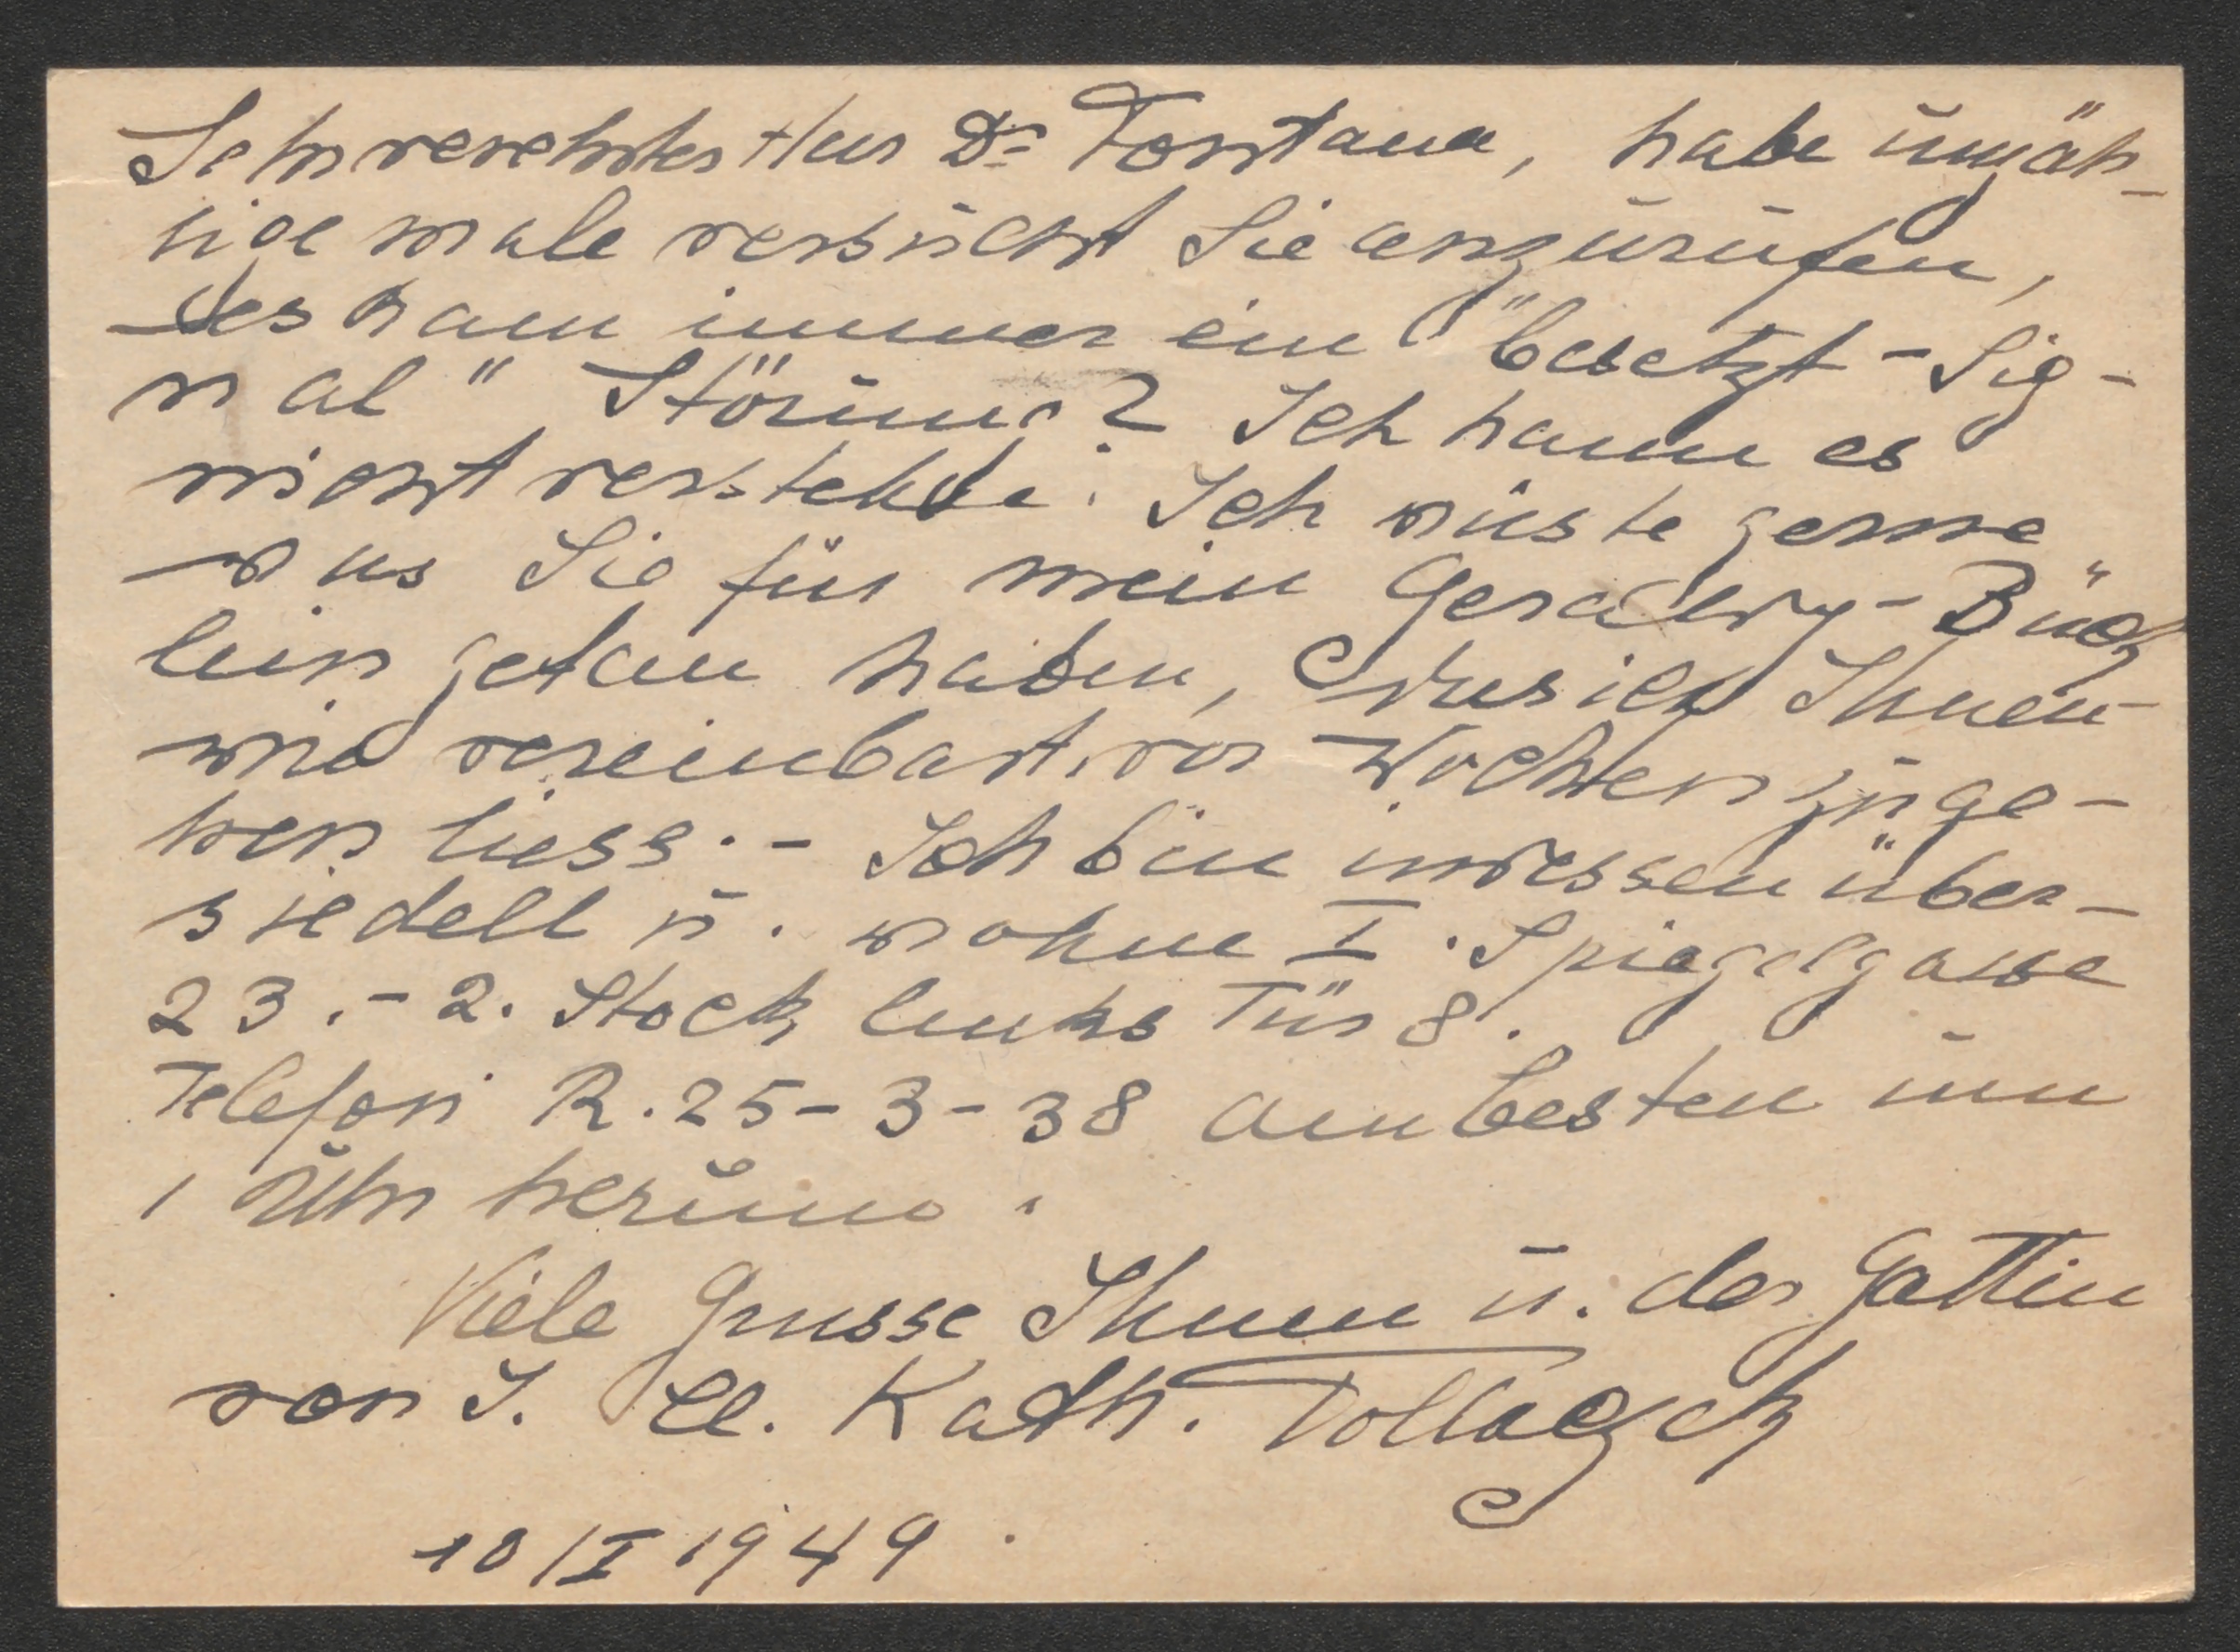 Sehr verehrter Herr Dr Fontana, habe unzäh-
lige male versucht Sie anzurufen,
es kam immer ein "besetzt-Sig-
nal" Störung? Ich kann es
nicht verstehen. Ich wüsste gerne
was Sie für mein Büch
lein getan haben, das ich Ihnen
wie vereinbart, vor Wochen zuge-
hen liess.- Ich bin indessen über-
siedelt u. wohne I. Spiegelgasse
23.- 2. Stock links Tür 8.
Telefon R.25-3-38 am besten um
1 Uhr herum.
Viele Grüsse Ihnen u. der Gattin
von I. Kath.
10/I 1949.